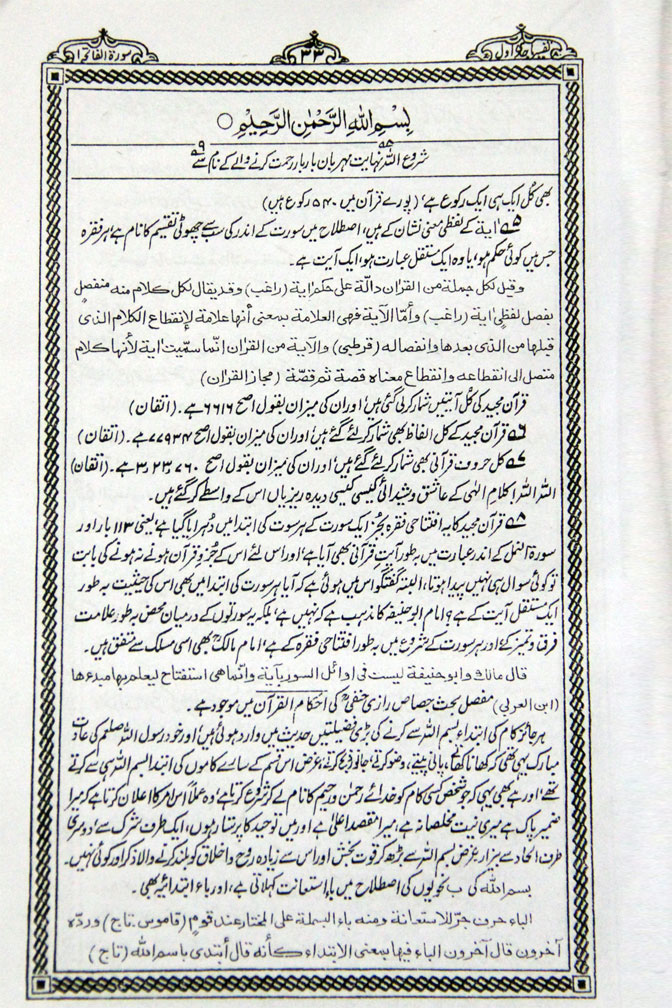 تفسیر ماجدی اول
۳۳
سورة الفاتحة ۱
بِسْمِ اللّٰهِ الرَّحْمٰنِ الرَّحِيْمِ ○
شروع اللہ نہایت مہربان بار بار رحمت کرنے والے کے نام سے
بھی کُل ایک ہی ایک رکوع ہے، (پورے قرآن میں ۵۴۰ رکوع ہیں)
۵ اٰیة کے لفظی معنی نشان کے ہیں، اصطلاح میں سورت کے اندر کی سب سے چھوٹی تقسیم کا نام ہے، ہر فقرہ
جس میں کوئی حکم ہو، یا وہ ایک مستقل عبارت ہو، ایک آیت ہے۔
وقیل لکل جملة من القراٰن دالّة علی حکم اٰیة (راغب) وقد یقال لکل کلام منه منفصل
بفصل لفظی اٰیة (راغب) وأمّا الآیة فهی العلامة بمعنی أنها علامة لإنقطاع الکلام الذی
قبلها من الذی بعدها وانفصاله (قرطبی) والآیة من القراٰن انّما سمّیت اٰیة لأنها کلام
متصل الی انقطاعه وانقطاع معناه قصة ثم قصّة (مجاز القراٰن)
قرآن مجید کی کُل آیتیں شمار کر لی گئی ہیں، اور ان کی میزان بقول اصح ۶۶۱۶ ہے۔ (اتقان)
۶ قرآن مجید کے کل الفاظ بھی شمار کر لئے گئے ہیں، اور ان کی میزان بقول اصح ۷۷۹۳۴ ہے۔ (اتقان)
۷ کل حروفِ قرآنی بھی شمار کر لئے گئے ہیں، اور ان کی میزان بقول اصح ۳٫۲۳٫۷۶۰ ہے۔ (اتقان)
اللہ اللہ! کلامِ الٰہی کے عاشق و شیدائی کیسی کیسی دیدہ ریزیاں اس کے واسطے کر گئے ہیں۔
۸ قرآن مجید کا یہ افتتاحی فقرہ بجز ایک سورت کے ہر سورت کی ابتدا میں دُہرایا گیا ہے، یعنی ۱۱۳ بار اور
سورة النمل کے اندر عبارت میں بہ طور آیتِ قرآنی بھی آیا ہے، اور اس لئے اس کے جُزوِ قرآن ہونے نہ ہونے کی بابت
تو کوئی سوال ہی نہیں پیدا ہوتا، البتہ گفتگو اس میں ہوئی ہے کہ آیا ہر سورت کی ابتدا میں بھی اس کی حیثیت بہ طور
ایک مستقل آیت کے ہے؟ امام ابو حنیفہؒ کا مذہب ہے کہ نہیں ہے، بلکہ یہ سورتوں کے درمیان محض بہ طور علامت
فرق و تمیز کے، اور ہر سورت کے شروع میں بہ طور افتتاحی فقرہ کے ہے، امام مالکؒ بھی اسی مسلک سے متفق ہیں۔
قال مالك وابوحنیفة لیست فی اوائل السور بآیة وإنّما هی استفتاح لیعلم بها مبدءها
(ابن العربی) مفصل بحث جصاص رازی حنفیؒ کی احکام القرآن میں موجود ہے۔
ہر جائز کام کی ابتداء بسم اللہ سے کرنے کی بڑی فضیلتیں حدیث میں وارد ہوئی ہیں، اور خود رسول اللہ صلعم کی عادتِ
مبارک یہی تھی کہ کھانا کھاتے، پانی پیتے، وضو کرتے، جانور ذبح کرتے، غرض اس قسم کے سارے کاموں کی ابتدا بسم اللہ ہی سے کرتے
تھے، اور ہے بھی یہی کہ جو شخص کسی کام کو خدائے رحمٰن و رحیم کا نام لے کر شروع کرتا ہے، وہ عملاً اس امر کا اعلان کرتا ہے کہ میرا
ضمیر پاک ہے میری نیت مخلصانہ ہے، میرا مقصد اعلیٰ ہے اور میں توحید کا پرستار ہوں، ایک طرف شرک سے، دوسری
طرف الحاد سے بیزار، غرض بسم اللہ سے بڑھ کر قوت بخش اور اس سے زیادہ روح و اخلاق کو بلند کرنے والا ذکر اور کوئی نہیں۔
بسم اللہ کی ب نحویوں کی اصطلاح میں باءِ استعانت کہلاتی ہے، اور باء ابتدائیہ بھی۔
الباء حرف جرّ للاستعانة ومنه باء البسملة علی المختار عند قوم (قاموس۔ تاج) وردّه
آخرون قال آخرون الباء فیها بمعنی الابتداء کأنه قال أبتدی باسم الله (تاج)